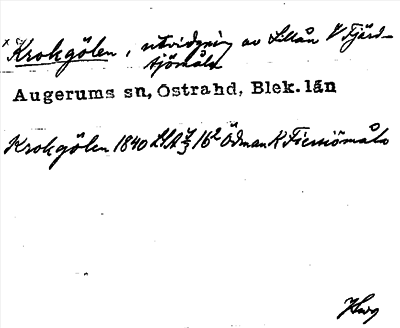 Krokgölen, utvidgning av Lillån V Fjärd-
sjömåla
Augerums sn, Östrahd, Blek. län
Krokgölen 1840 LSA 16² Ödman K Fiersiömåla